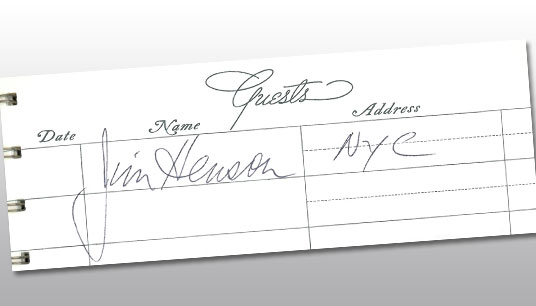 Guests
Date Name Address
Jim Henson NYC